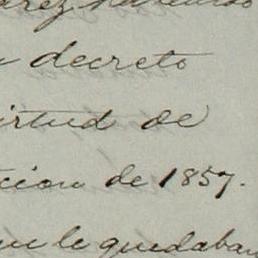 decreto
irtud de
cion de 1857.
ue le quedaban